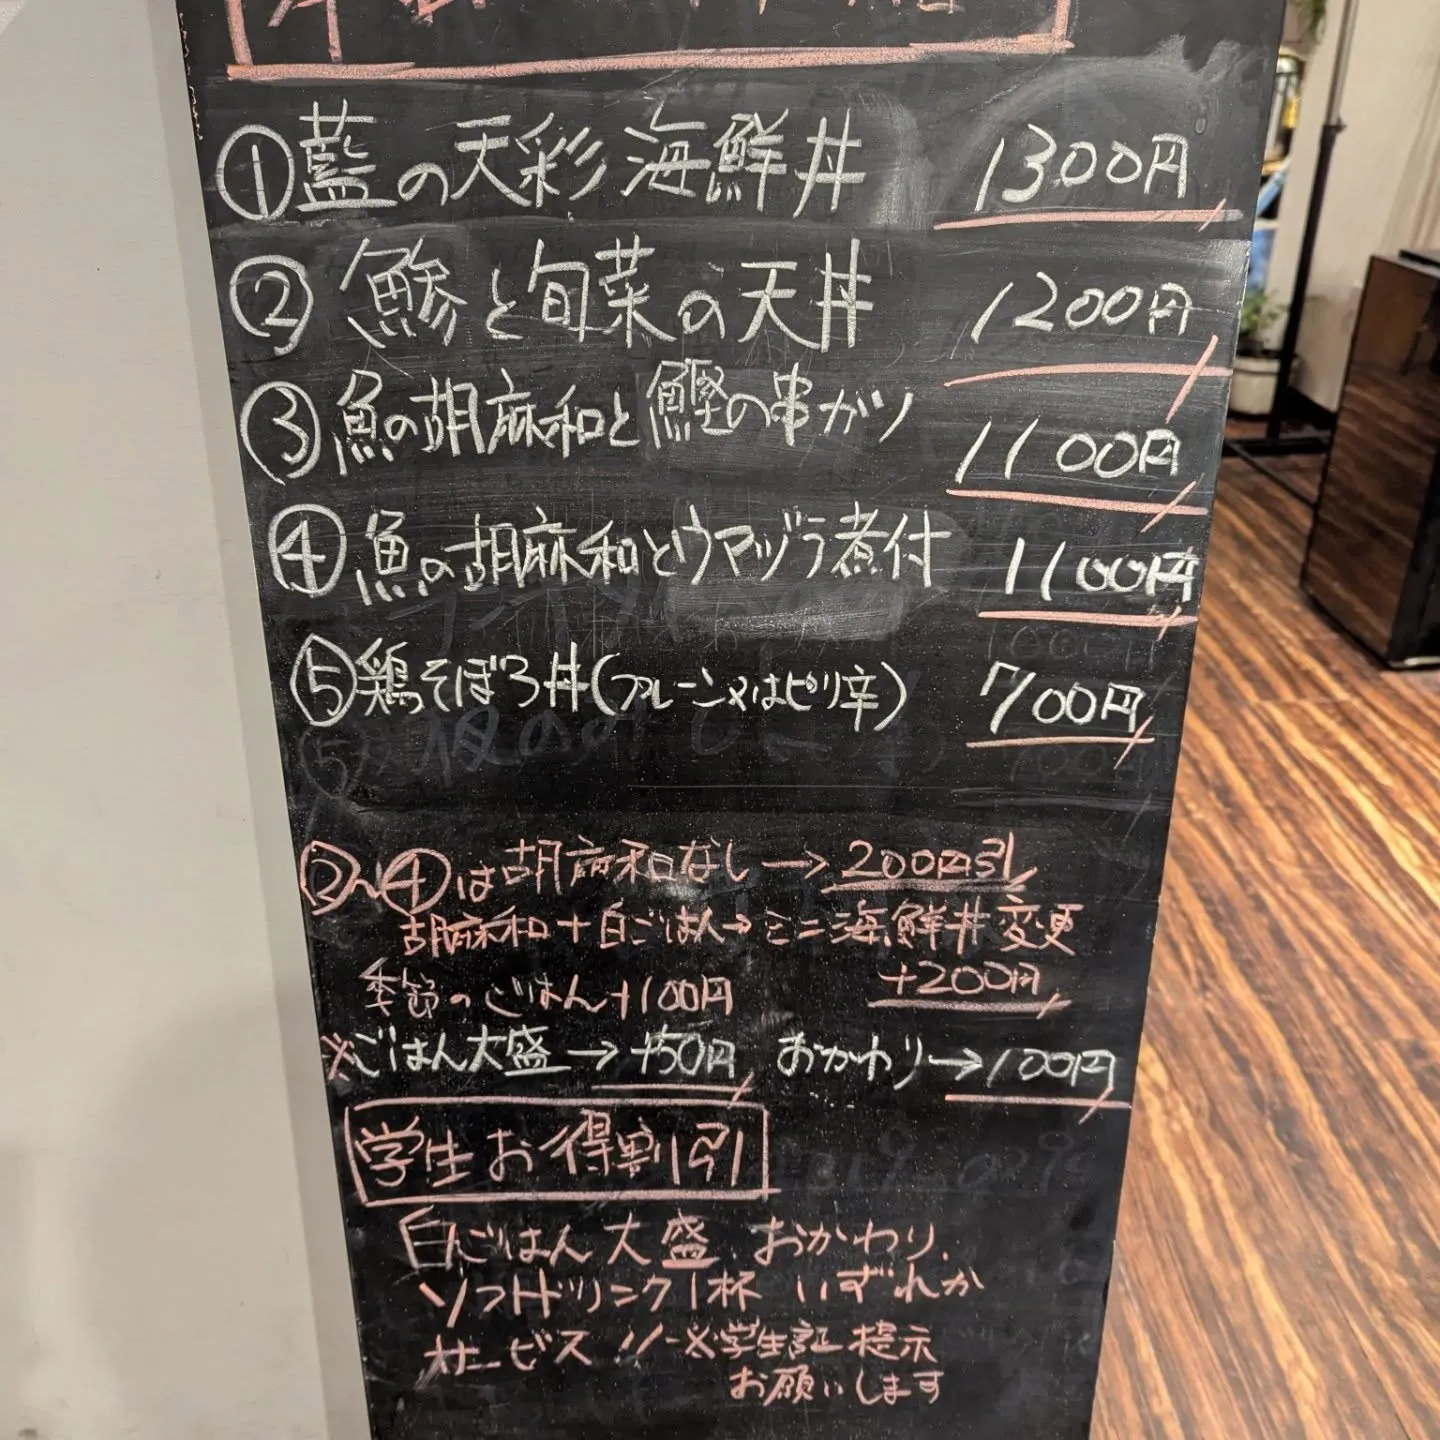 ①藍の天彩海鮮丼 1300円
②鰺と旬菜の天丼 1200円
③魚の胡麻和と鰹の串カツ 1100円
④魚の胡麻和とウマヅラ煮付 1100円
⑤鶏そぼろ丼(プレーン又はピリ辛) 700円
③~④は胡麻和なし→200円引
胡麻和+白ごはん→ミニ海鮮丼変更
季節のごはん+100円 +200円
※ごはん大盛→+50円 おかわり→100円
学生お得割引
白ごはん大盛 おかわり、
ソフトドリンク1杯 いずれか
サービス!!※学生証提示
お願いします